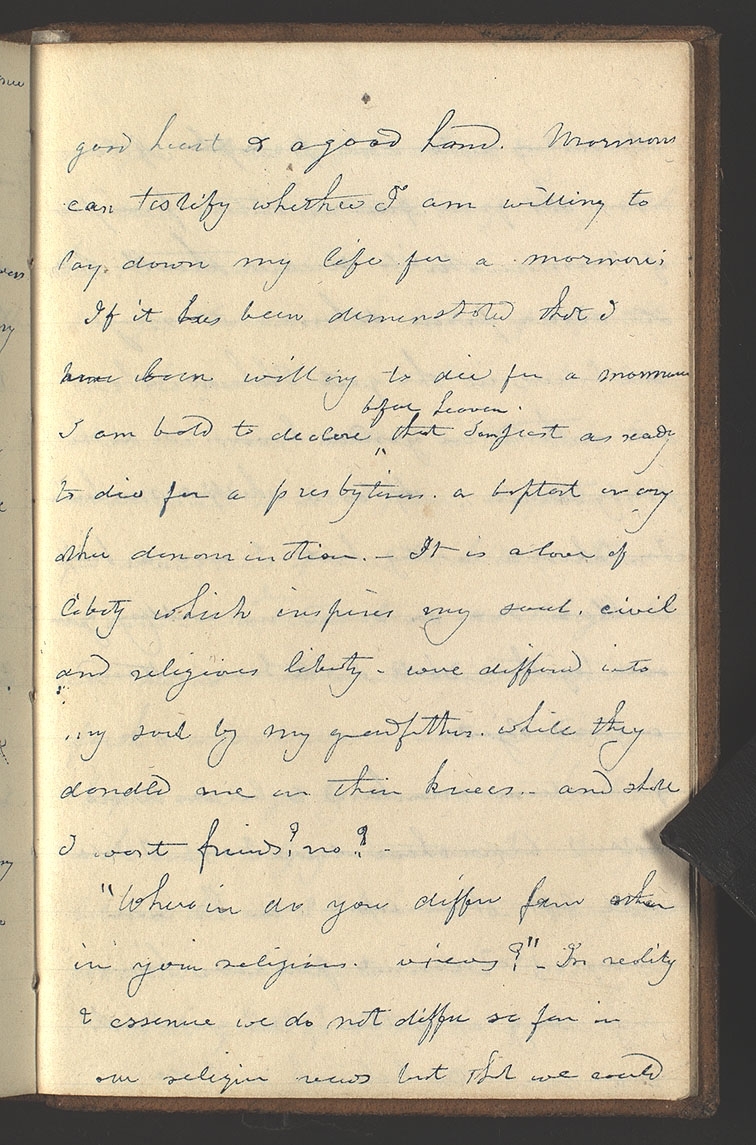 good heart & a good hand. Mormons
can testify whether I am willing to
lay down my life for a mormon;
If it has been demonstrated that I
have been willing to die for a mormon
before heaven.
I am bold to declare that I am just as ready
to die for a presbyterian. a baptist or any
other denomination. — It is a love of
liberty which inspires my soul. civil
and religious liberty - were diffused into
my soul by my grandfathers. while they
dandled me on their knees. - and shall
I want friends? no? -
"Wherein do you differ from other
in your religious views?" - In reality
& essence we do not differ so far in
our religious views but that we could